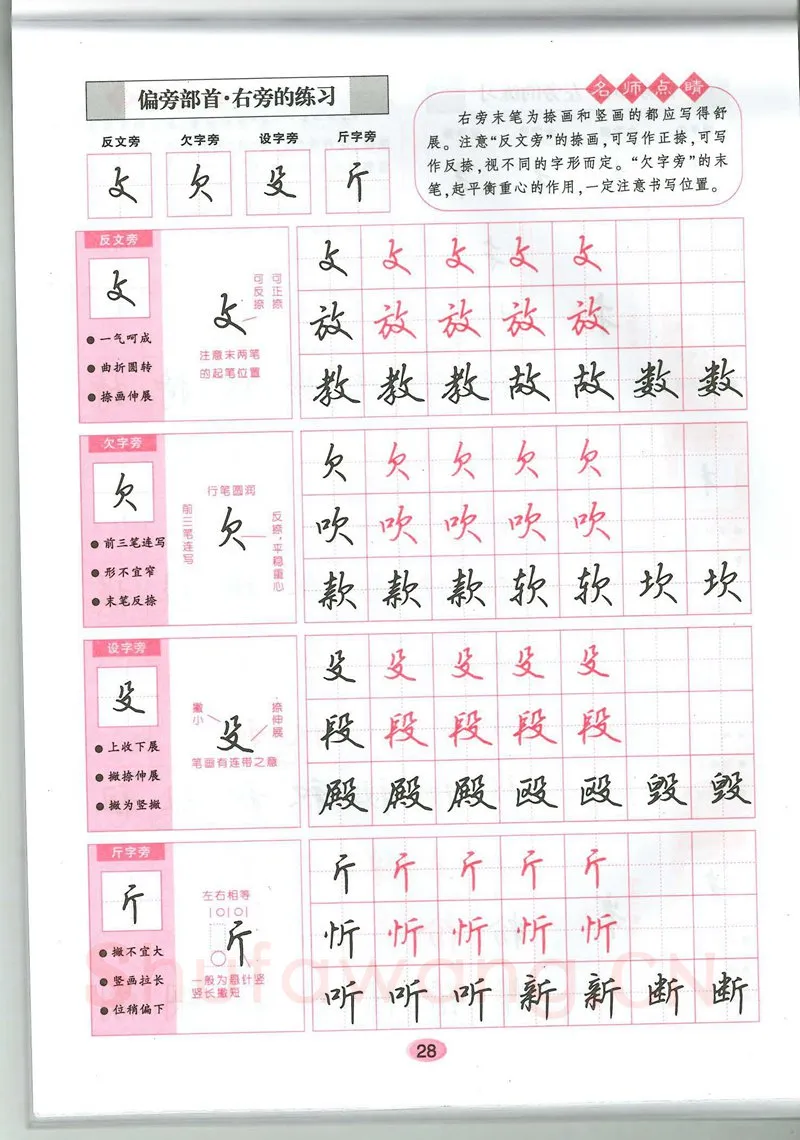 偏旁部首·右旁的练习
名师点睛
右旁末笔为捺画和竖画的都应写得舒
展。注意“反文旁”的捺画，可写作正捺，可写
作反捺，视不同的字形而定。“欠字旁”的末
笔，起平衡重心的作用，一定注意书写位置。
反文旁 欠字旁 设字旁 斤字旁
攵 欠 殳 斤
反文旁
攵
一气呵成
曲折圆转
捺画伸展
可正捺
可反捺
攵
注意末两笔
的起笔位置
攵 攵 攵 攵 攵
放 放 放 放 放
教 教 教 故 故 数 数
欠字旁
欠
前三笔连写
形不宜窄
末笔反捺
行笔圆润
前三笔连写
欠
反捺，平稳重心
欠 欠 欠 欠 欠
吹 吹 吹 吹 吹
款 款 款 软 软 坎 坎
设字旁
殳
上收下展
撇捺伸展
撇为竖撇
撇小
殳
捺伸展
笔画有连带之意
殳 殳 殳 殳 殳
段 段 段 段 段
殿 殿 殿 殴 殴 毁 毁
斤字旁
斤
撇不宜大
竖画拉长
位稍偏下
左右相等
斤
一般为悬针竖
竖长撇短
斤 斤 斤 斤 斤
忻 忻 忻 忻 忻
听 听 听 新 新 断 断
Shufawang.CN
28